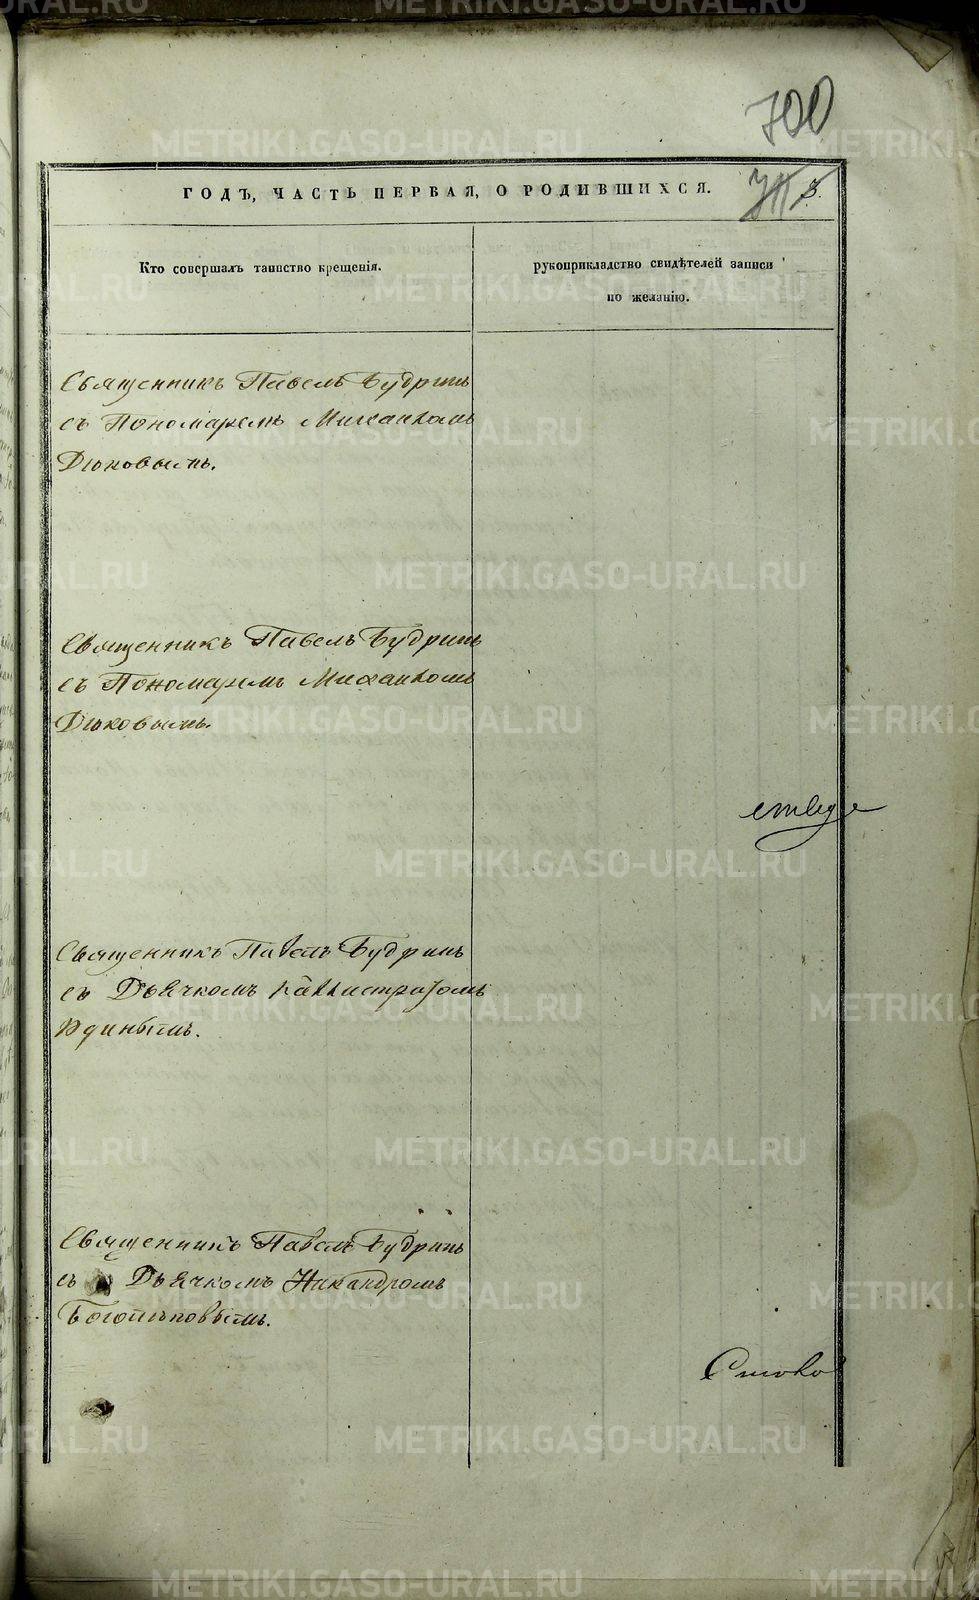 700
ГОДЪ, ЧАСТЬ ПЕРВАЯ, О РОДИВШИХСЯ.
Кто совершалъ таинство крещенія.
рукоприкладство свидѣтелей записи
по желанію.
Священникъ Павелъ Будринъ
съ Пономаремъ Михаиломъ
Дюковымъ.
Священникъ Павелъ Будринъ
съ Пономаремъ Михаиломъ
Дюковымъ.
Священникъ Павелъ Будринъ
съ Дьячкомъ Каллистратомъ
Священникъ Павелъ Будринъ
съ Дьячкомъ Никандромъ
METRIKI.GASO-URAL.RU